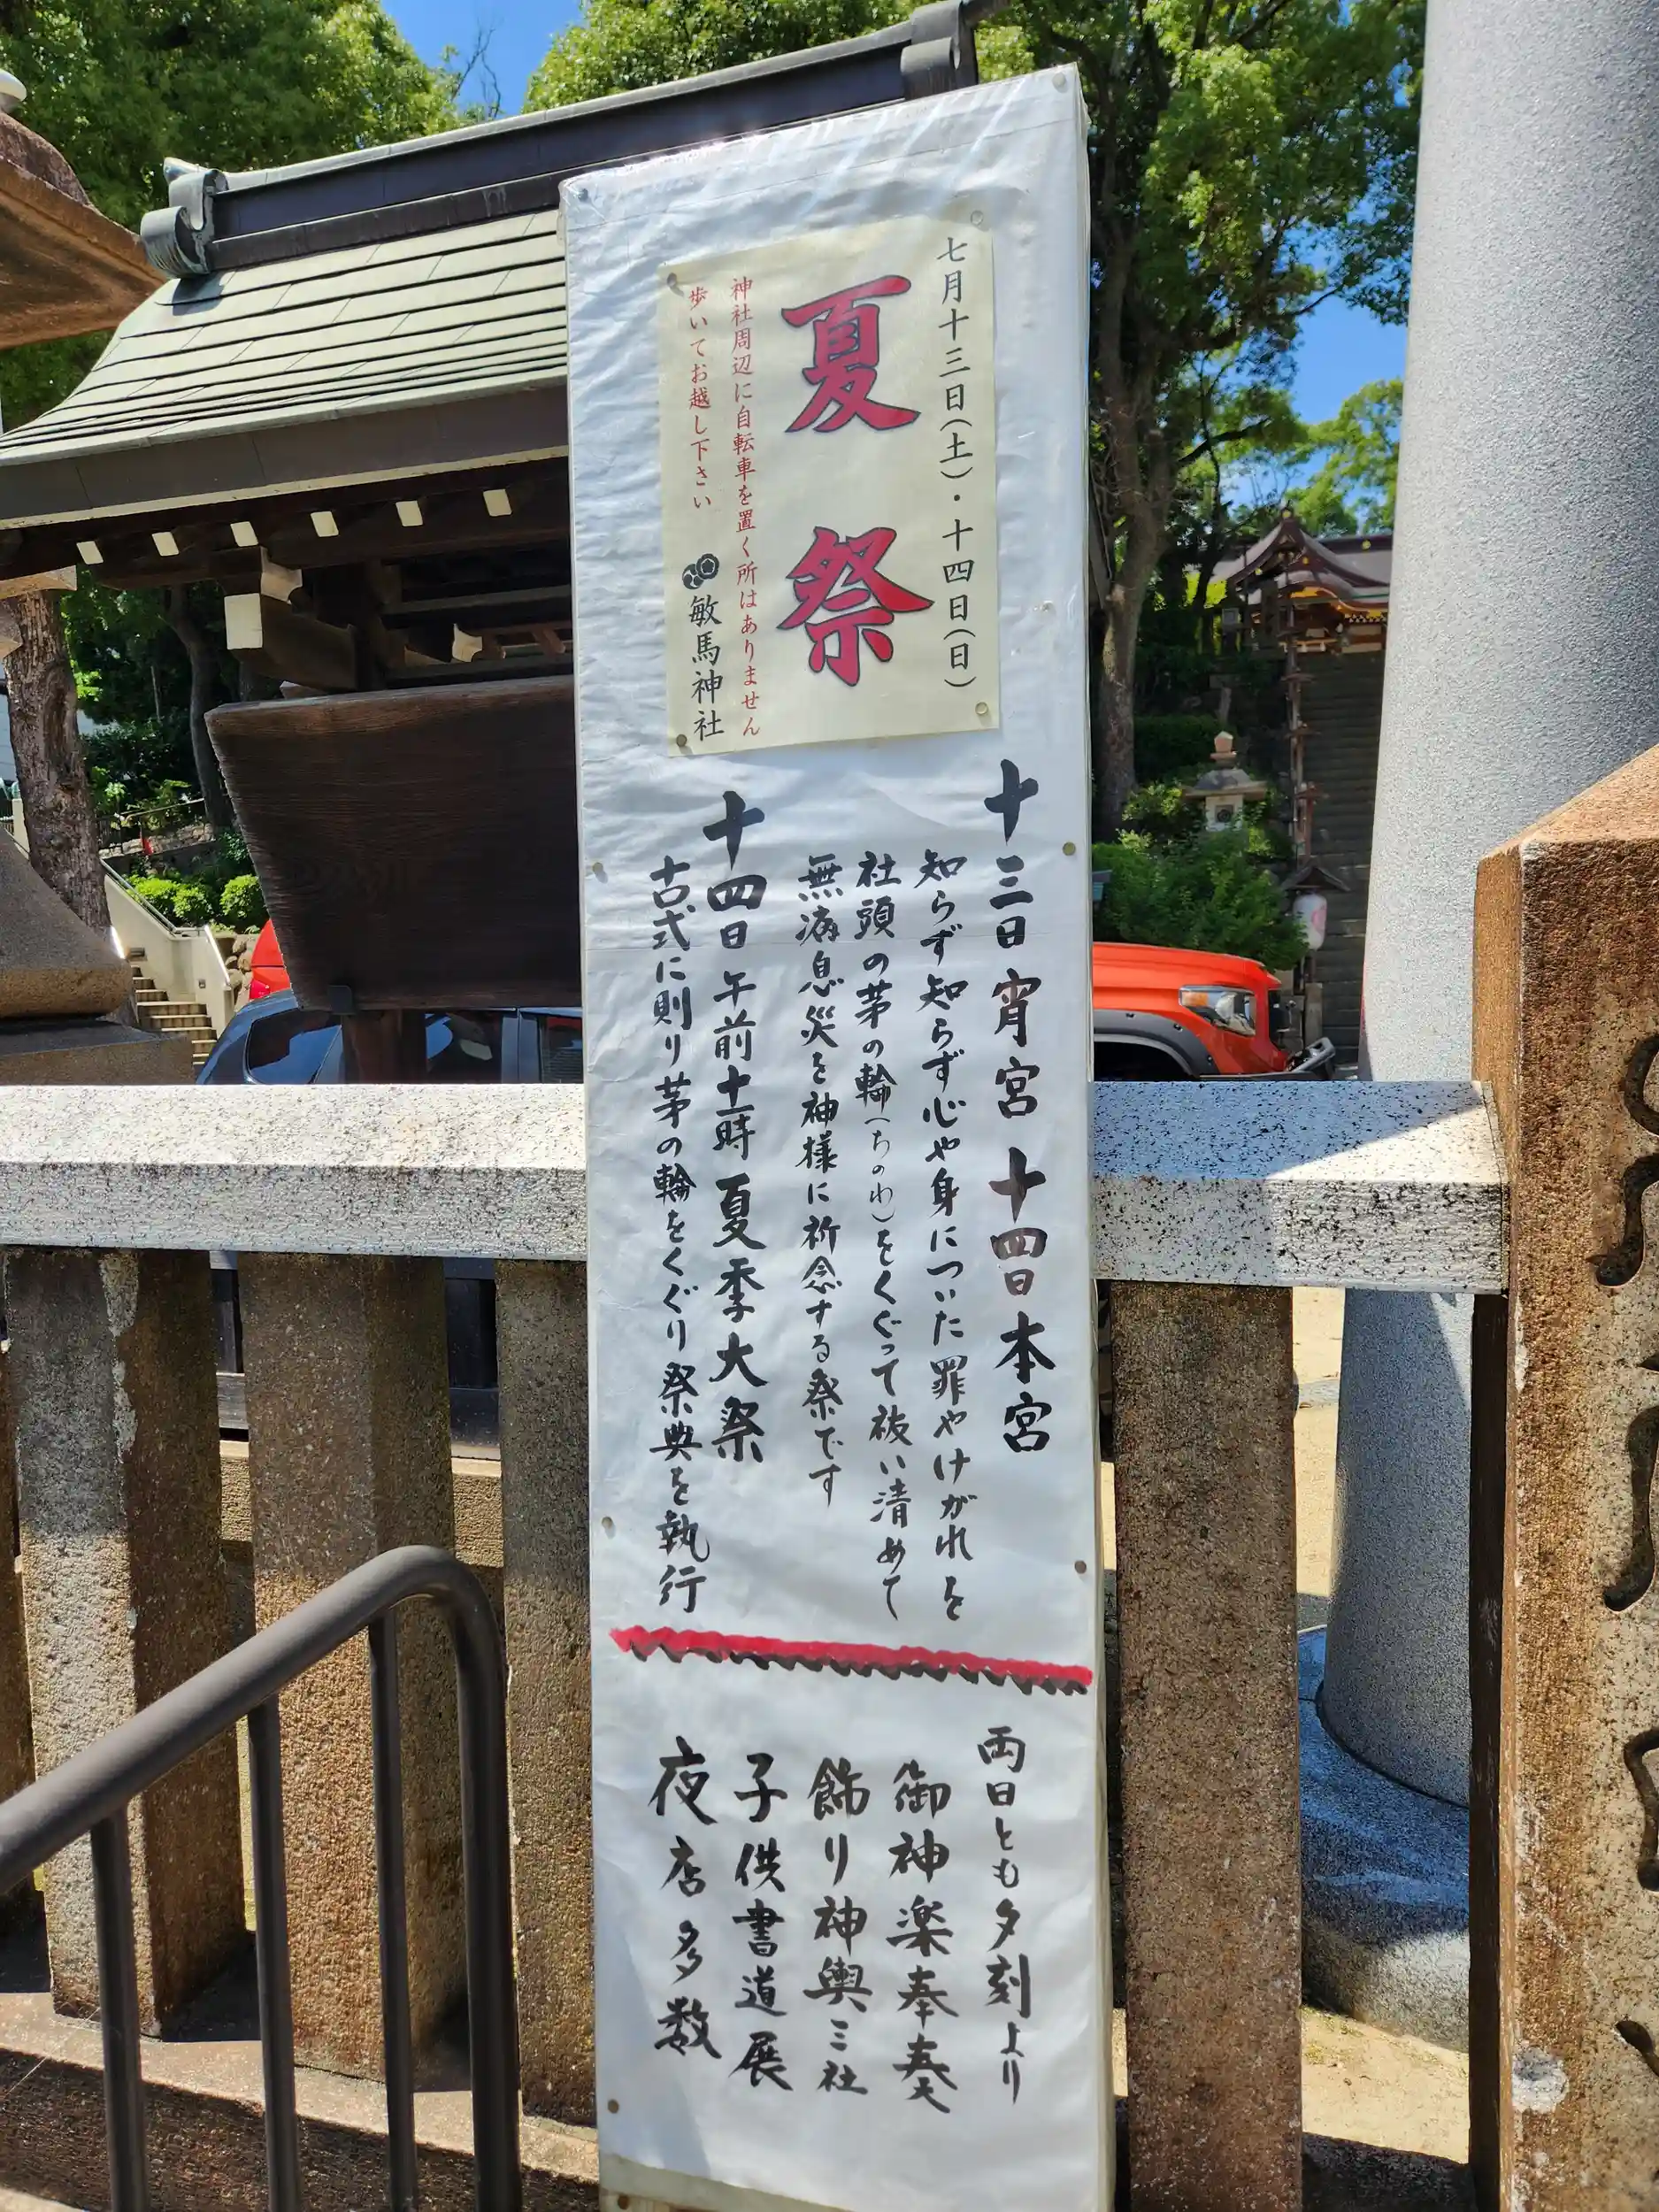 七月十三日(土)・十四日(日)
夏祭
神社周辺に自転車を置く所はありません
歩いてお越し下さい
敏馬神社
十三日宵宮 十四日本宮
知らず知らず心や身についた罪やけがれを
社頭の茅の輪(ちのわ)をくぐって祓い清めて
無病息災を神様に祈念する祭です
十四日午前十一時 夏季大祭
古式に則り茅の輪をくぐり祭典を執行
両日とも夕刻より
御神楽奉奏
飾り神輿三社
子供書道展
夜店多数